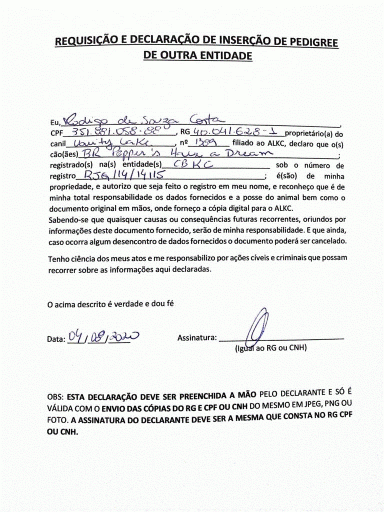 REQUISIÇÃO E DECLARAÇÃO DE INSERÇÃO DE PEDIGREE
DE OUTRA ENTIDADE
Eu, Rodrigo de Souza Costa
CPF 351.881.058-88, RG 40.041.628-1 proprietário(a) do
canil Vanity Cake, nº 1309 filiado ao ALKC, declaro que o(s)
cão(ães) BR Pepper's Have a Dream ;
registrado(s) na(s) entidade(s) CBKC sob o número de
registro RJG/14/14115 ; é(são) de minha
propriedade, e autorizo que seja feito o registro em meu nome, e reconheço que é de
minha total responsabilidade os dados fornecidos e a posse do animal bem como o
documento original em mãos, onde forneço a cópia digital para o ALKC.
Sabendo-se que quaisquer causas ou consequências futuras recorrentes, oriundos por
informações deste documento fornecido, serão de minha responsabilidade. E que ainda,
caso ocorra algum desencontro de dados fornecidos o documento poderá ser cancelado.
Tenho ciência dos meus atos e me responsabilizo por ações cíveis e criminais que possam
recorrer sobre as informações aqui declaradas.
O acima descrito é verdade e dou fé
Data: 04/08/2020 Assinatura:
(Igual ao RG ou CNH)
OBS: ESTA DECLARAÇÃO DEVE SER PREENCHIDA A MÃO PELO DECLARANTE E SÓ É
VÁLIDA COM O ENVIO DAS CÓPIAS DO RG E CPF OU CNH DO MESMO EM JPEG, PNG OU
FOTO. A ASSINATURA DO DECLARANTE DEVE SER A MESMA QUE CONSTA NO RG CPF
OU CNH.